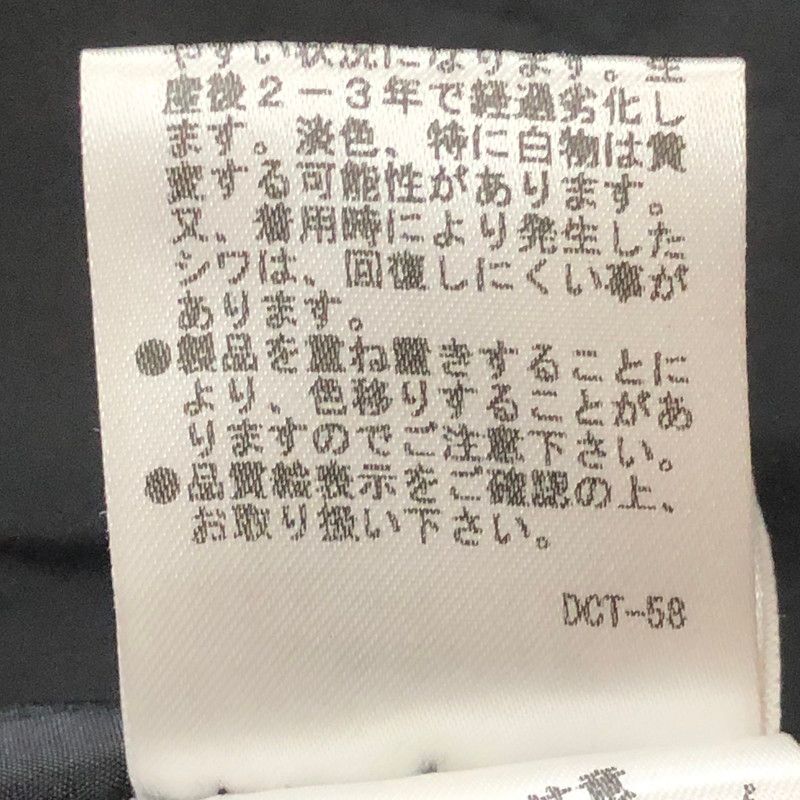 やすい状況になります。生
産後2－3年で経過劣化し
ます。淡色、特に白物は黄
変する可能性があります。
又、着用時により発生した
シワは、回復しにくい事が
あります。
●製品を重ね置きすることに
より、色移りすることがあ
りますのでご注意下さい。
●品質絵表示をご確認の上、
お取り扱い下さい。
DCT-58